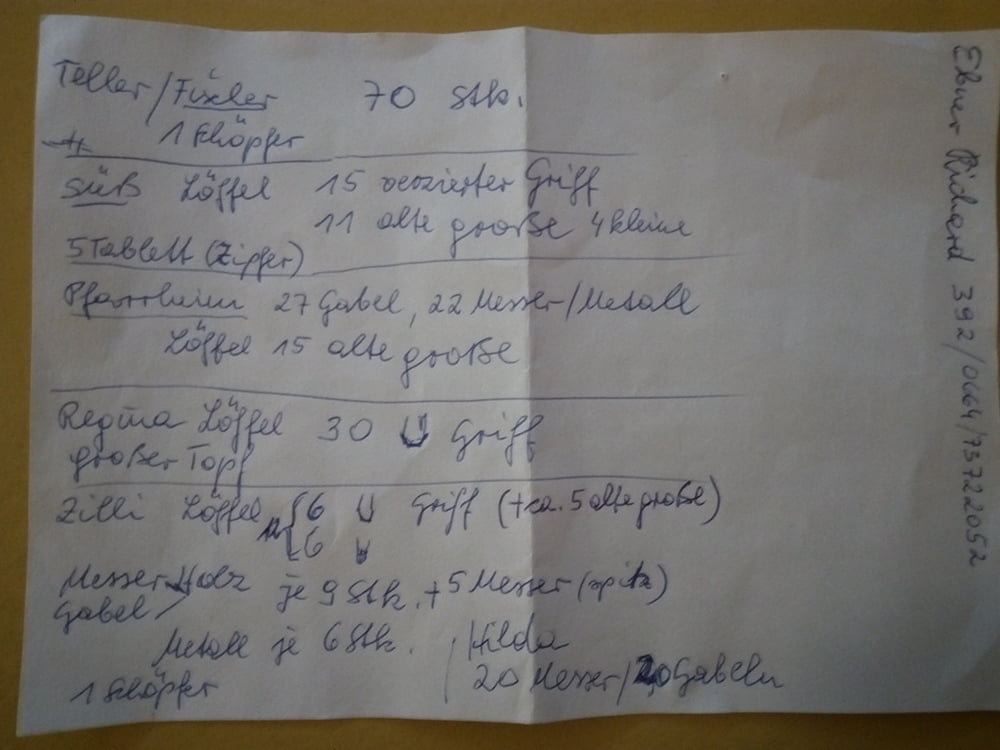 Teller/Fixler 70 Stk.
1 Schöpfer
Süß Löffel 15 verzierter Griff
11 alte große 4 kleine
5 Tablett (Zipfer)
Pfarrheim 27 Gabel, 22 Messer/Metall
Löffel 15 alte große
Regina Löffel 30 U Griff
großer Topf
Zilli Löffel 56 U Griff (+ca. 5 alte große)
26
Messer Holz je 9 Stk. + 5 Messer (spitz)
Gabel
Metall je 6 Stk. Hilda
1 Schöpfer 20 Messer/20 Gabeln
Ebner Richard 392/0664/73722052